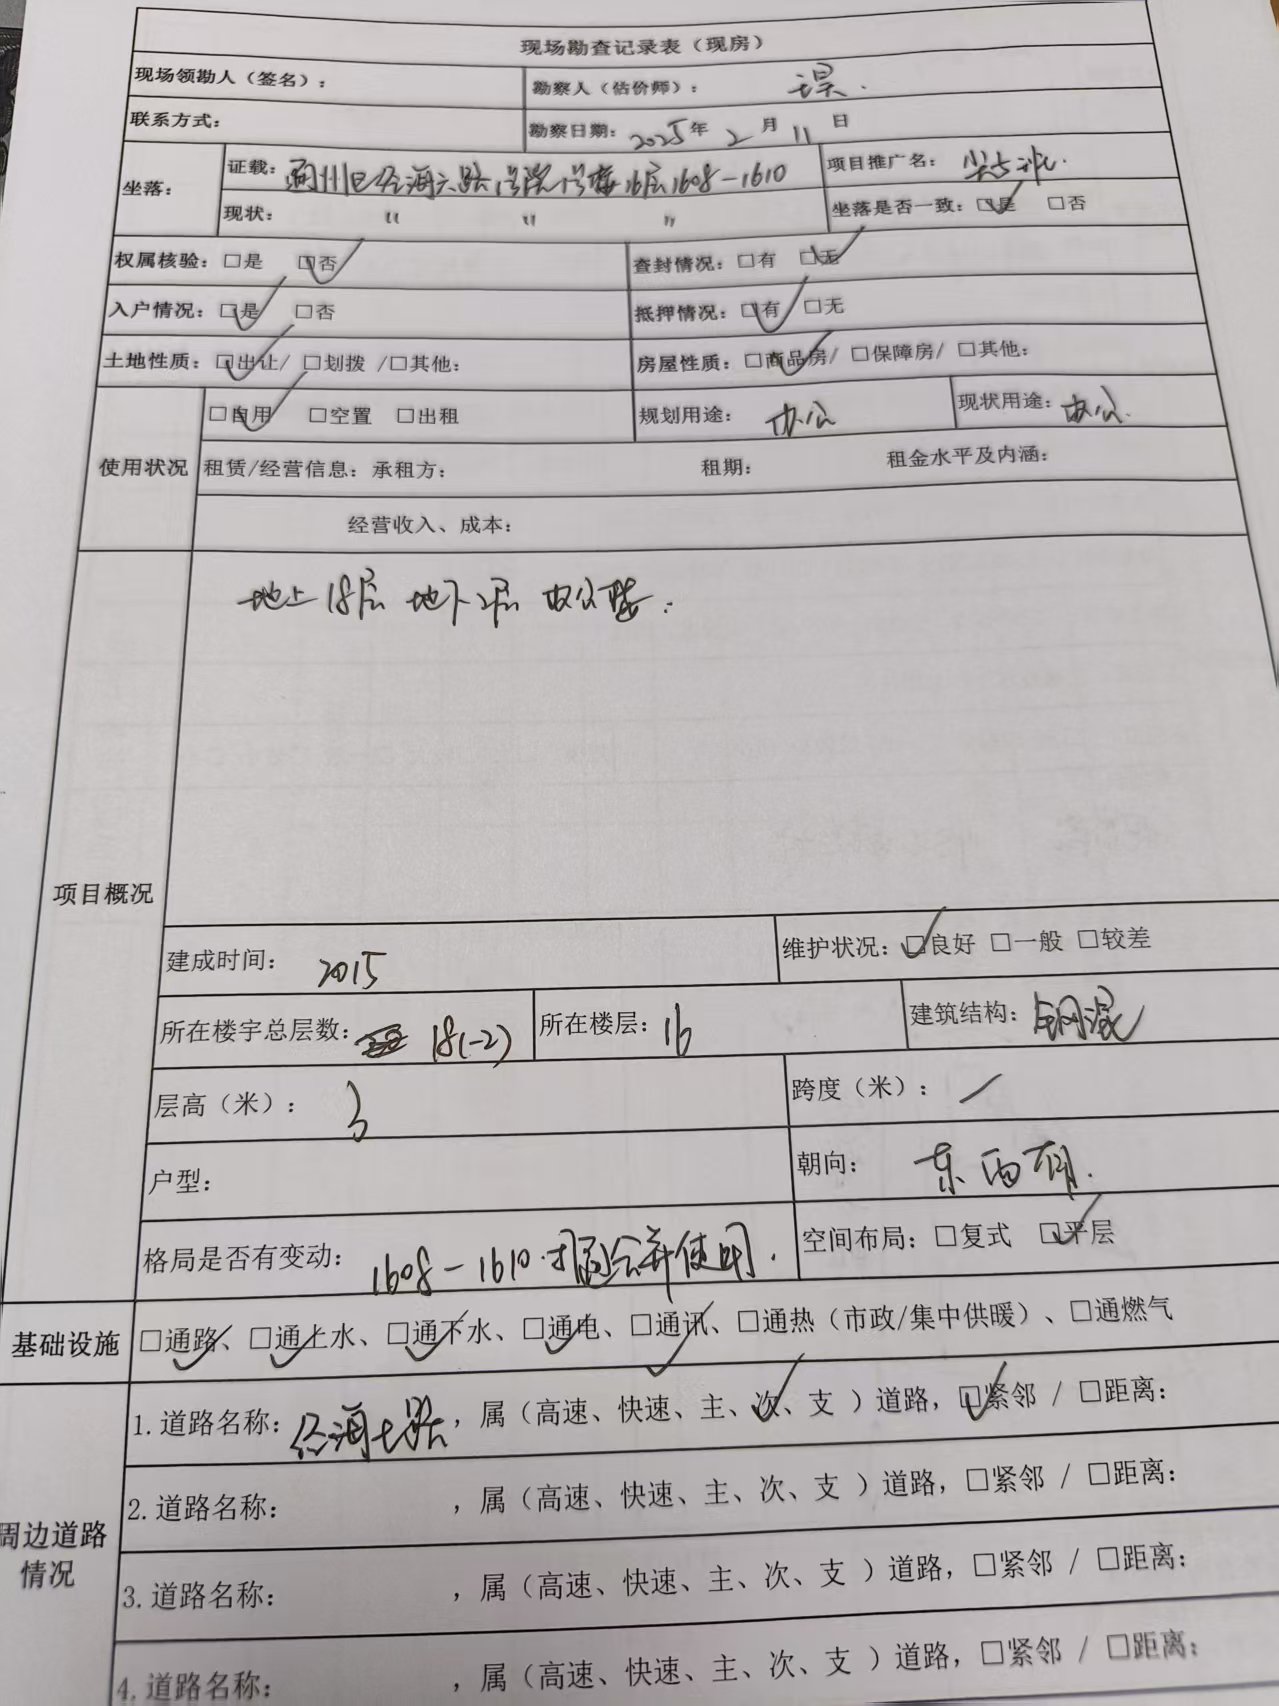 现场勘查记录表（现房）
现场领勘人（签名）： 勘察人（估价师）：
联系方式： 勘察日期：2025年2月11日
坐落： 证载： 州区经海六路1号院1号楼16层1608-1610 项目推广名：
现状： " " " 坐落是否一致：☑是 □否
权属核验：□是 ☑否 查封情况：□有 ☑无
入户情况：☑是 □否 抵押情况：☑有 □无
土地性质：☑出让/ □划拨 /□其他： 房屋性质：☑商品房/ □保障房/ □其他：
使用状况 ☑自用 □空置 □出租 规划用途：办公 现状用途：办公.
租赁/经营信息：承租方： 租期： 租金水平及内涵：
经营收入、成本：
项目概况
地上18层 地下2层 办公楼.
建成时间：2015 维护状况：☑良好 □一般 □较差
所在楼宇总层数：18(-2) 所在楼层：16 建筑结构：钢混
层高（米）：3 跨度（米）：/
户型： 朝向：东西南.
格局是否有变动：1608-1610 合并使用. 空间布局：□复式 ☑平层
基础设施 ☑通路、☑通上水、☑通下水、☑通电、☑通讯、□通热（市政/集中供暖）、□通燃气
周边道路情况
1.道路名称：经海七路，属（高速、快速、主、次✓、支 ）道路，☑紧邻 / □距离：
2.道路名称： ，属（高速、快速、主、次、支 ）道路，□紧邻 / □距离：
3.道路名称： ，属（高速、快速、主、次、支 ）道路，□紧邻 / □距离：
4.道路名称： ，属（高速、快速、主、次、支 ）道路，□紧邻 / □距离：